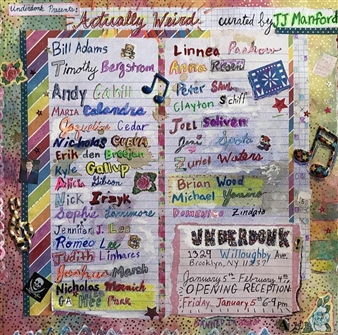 Underdonk Presents:
Actually Weird.
curated by TJ Manford
Bill Adams
Timothy Bergstrom
Andy Cahill
Maria Calandra
Jacqueline Cedar
Nicholas Cueva
Erik den Breejen
Kyle Gallup
Alicia Gibson
Nick Irzyk
Sophie Larrimore
Jennifer J. Lee
Romeo Lee
Judith Linhares
March
Nicholas Moenich
Park
Linnea Paskow
Anna
Peter
Clayton Schiff
Joel Soliven
Zuriel Waters
Brian Wood
Michael Yenino
Domenica Zindato
UNDERDONK
1329 Willoughby Ave
Brooklyn, NY 11237
January 5th - February 4th
OPENING RECEPTION
Friday, January 5th 6-9pm